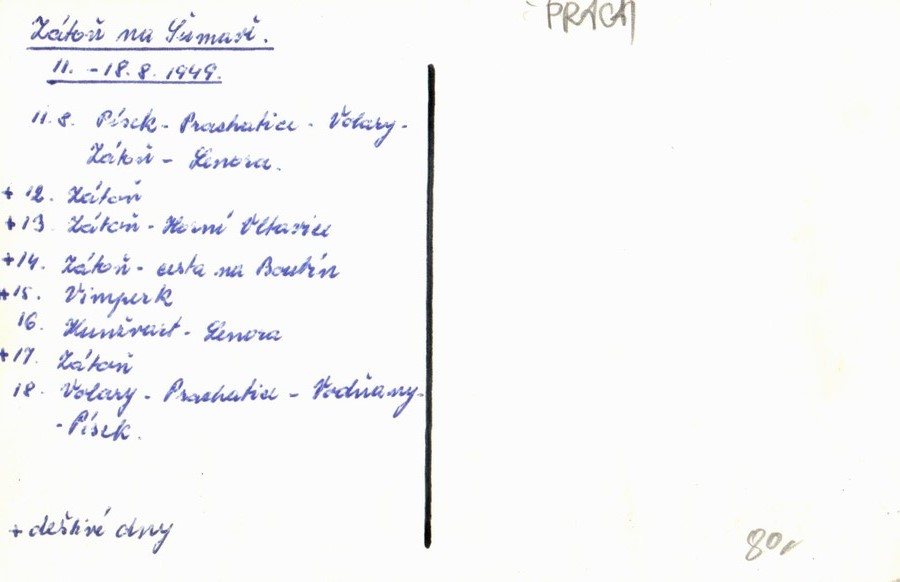 Zátoň na Šumavě.
11. - 18. 8. 1949.
11. 8. Písek - Prachatice - Volary -
Zátoň - Lenora.
+ 12. Zátoň
+ 13. Zátoň - Horní Vltavice
+ 14. Zátoň - cesta na Boubín
+ 15. Vimperk
16. Kunžvart - Lenora
+ 17. Zátoň
18. Volary - Prachatice - Vodňany -
- Písek.
+ deštivé dny
PRACH
80,-